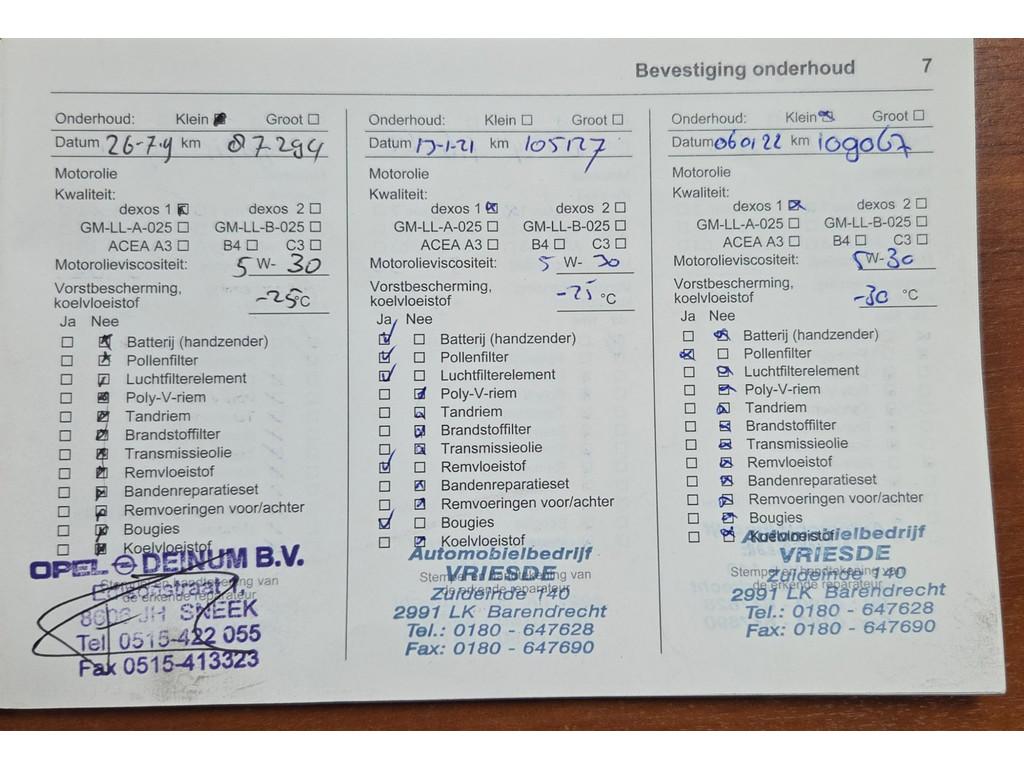 Bevestiging onderhoud 7
Onderhoud: Klein Groot
Datum 26-7-19 km 87294
Motorolie
Kwaliteit:
dexos 1 dexos 2
GM-LL-A-025 GM-LL-B-025
ACEA A3 B4 C3
Motorolieviscositeit: 5 W- 30
Vorstbescherming,
koelvloeistof -25 °C
Ja Nee
Batterij (handzender)
Pollenfilter
Luchtfilterelement
Poly-V-riem
Tandriem
Brandstoffilter
Transmissieolie
Remvloeistof
Bandenreparatieset
Remvoeringen voor/achter
Bougies
Koelvloeistof
OPEL DEINUM B.V.
Stempel en handtekening van
de erkende reparateur
Edisonstraat
JH SNEEK
Tel 0515-422 055
Fax 0515-413323
Onderhoud: Klein Groot
Datum km 105127
Motorolie
Kwaliteit:
dexos 1 dexos 2
GM-LL-A-025 GM-LL-B-025
ACEA A3 B4 C3
Motorolieviscositeit: 5 W- 30
Vorstbescherming,
koelvloeistof -25 °C
Ja Nee
Batterij (handzender)
Pollenfilter
Luchtfilterelement
Poly-V-riem
Tandriem
Brandstoffilter
Transmissieolie
Remvloeistof
Bandenreparatieset
Remvoeringen voor/achter
Bougies
Koelvloeistof
Automobielbedrijf
VRIESDE
Stempel en handtekening van
de erkende reparateur
Zuideinde 140
2991 LK Barendrecht
Tel.: 0180 - 647628
Fax: 0180 - 647690
Onderhoud: Klein Groot
Datum 060122 km 109067
Motorolie
Kwaliteit:
dexos 1 dexos 2
GM-LL-A-025 GM-LL-B-025
ACEA A3 B4 C3
Motorolieviscositeit: 5W-30
Vorstbescherming,
koelvloeistof -30 °C
Ja Nee
Batterij (handzender)
Pollenfilter
Luchtfilterelement
Poly-V-riem
Tandriem
Brandstoffilter
Transmissieolie
Remvloeistof
Bandenreparatieset
Remvoeringen voor/achter
Bougies
Koelvloeistof
Automobielbedrijf
VRIESDE
Stempel en handtekening van
de erkende reparateur
Zuideinde 140
2991 LK Barendrecht
Tel.: 0180 - 647628
Fax: 0180 - 647690